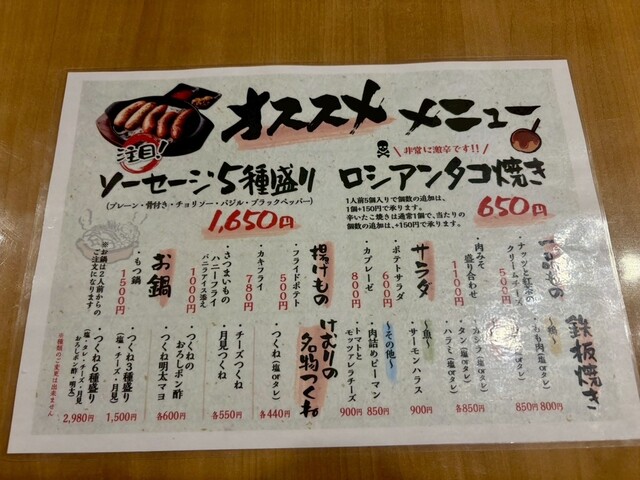 オススメ メニュー
注目!
ソーセージ5種盛り
(プレーン・骨付き・チョリソー・バジル・ブラックペッパー)
1,650円
非常に激辛です!!
ロシアンタコ焼き
1人前5個入りで個数の追加は、
1個+150円で承ります。
辛いたこ焼きは通常1個で、当たりの
個数の追加は、+150円で承ります。
650円
ナッツと紅茶の
クリームチーズ
500円
・肉みそ
盛り合わせ
1100円
サラダ
・ポテトサラダ
600円
・カプレーゼ
800円
揚げもの
・フライドポテト
500円
・カキフライ
780円
・さつまいもの
ハニーフライ
バニラアイス添え
1000円
お鍋
・もつ鍋
1500円
※お鍋は2人前からの
ご注文になります。
鉄板焼き
もも肉(塩orタレ)
850円
800円
・タン(塩orタレ)
・ハラミ(塩orタレ)
各850円
〜魚〜
・サーモンハラス
900円
〜その他〜
・肉詰めピーマン
850円
・トマトと
モッツァレラチーズ
900円
けむりの
名物つくね
・つくね(塩orタレ)
各440円
・チーズつくね
・月見つくね
各550円
・つくねの
おろしポン酢
・つくね明太マヨ
各600円
・つくね3種盛り
(塩・チーズ・月見)
1,500円
・つくね6種盛り
(塩・タレ・チーズ・月見
おろしポン酢・明太)
2,980円
※種類のご変更は出来ません